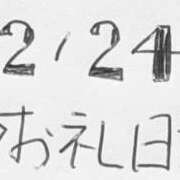 2,24
お礼日